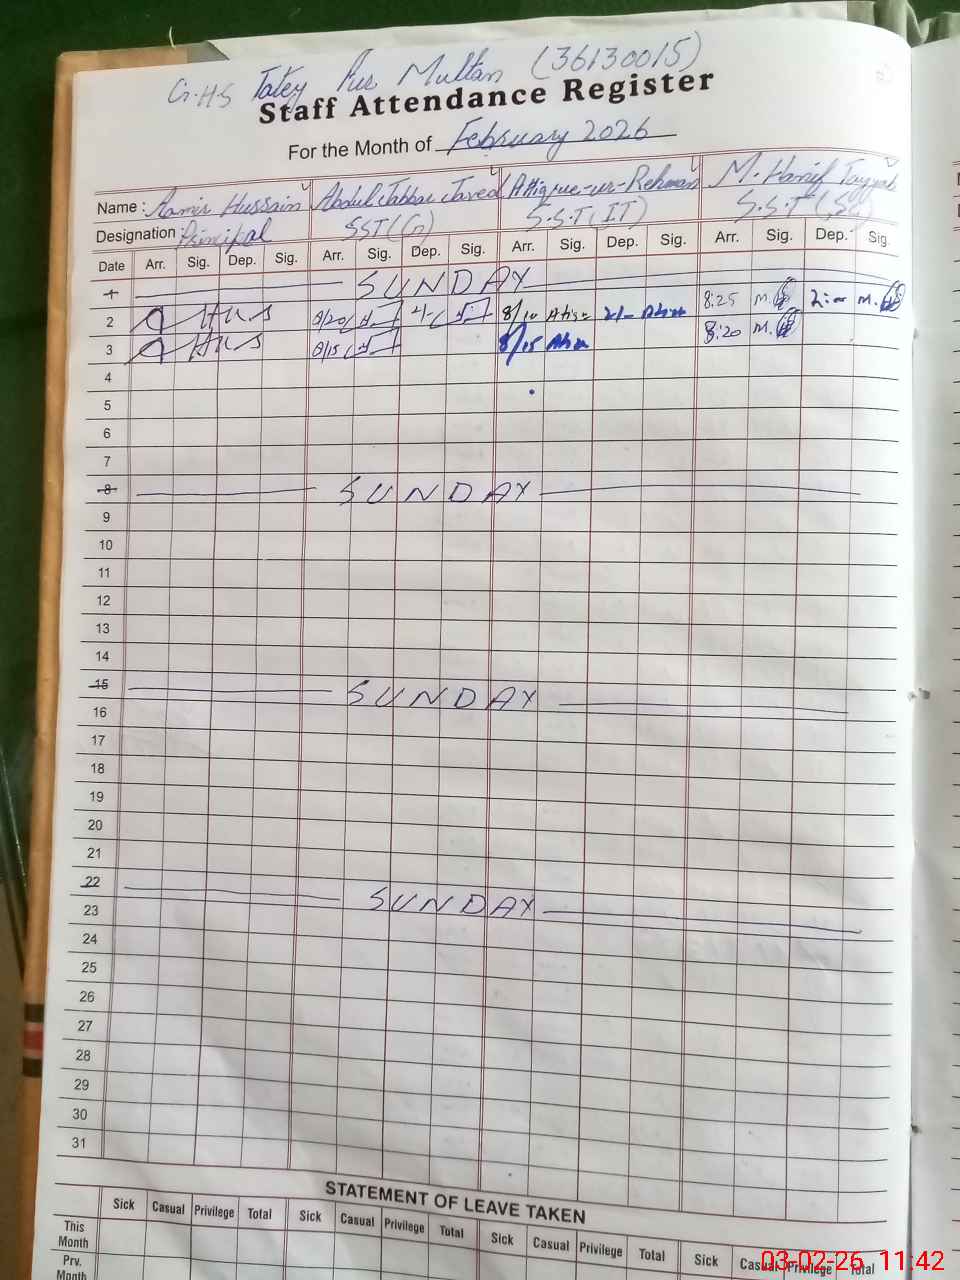 G.HS Tatey Pur Multan (36130015)
Staff Attendance Register
For the Month of February 2026
Name : Aamir Hussain Abdul Jabbar Javed Attique-ur-Rehman M. Hanif Tayyab
Designation Principal SST(G) S.S.T(IT) S.S.T(Sc)
Date Arr. Sig. Dep. Sig. Arr. Sig. Dep. Sig. Arr. Sig. Dep. Sig. Arr. Sig. Dep. Sig.
1 SUNDAY
2 8/20 8/10 2/- 8:25 M. M.
3 8/15 8/15 8:20 M.
4
5
6
7
8 SUNDAY
9
10
11
12
13
14
15 SUNDAY
16
17
18
19
20
21
22 SUNDAY
23
24
25
26
27
28
29
30
31
STATEMENT OF LEAVE TAKEN
Sick Casual Privilege Total Sick Casual Privilege Total Sick Casual Privilege Total Sick Casual Privilege Total
This Month
Prv. Month
03-02-26 11:42